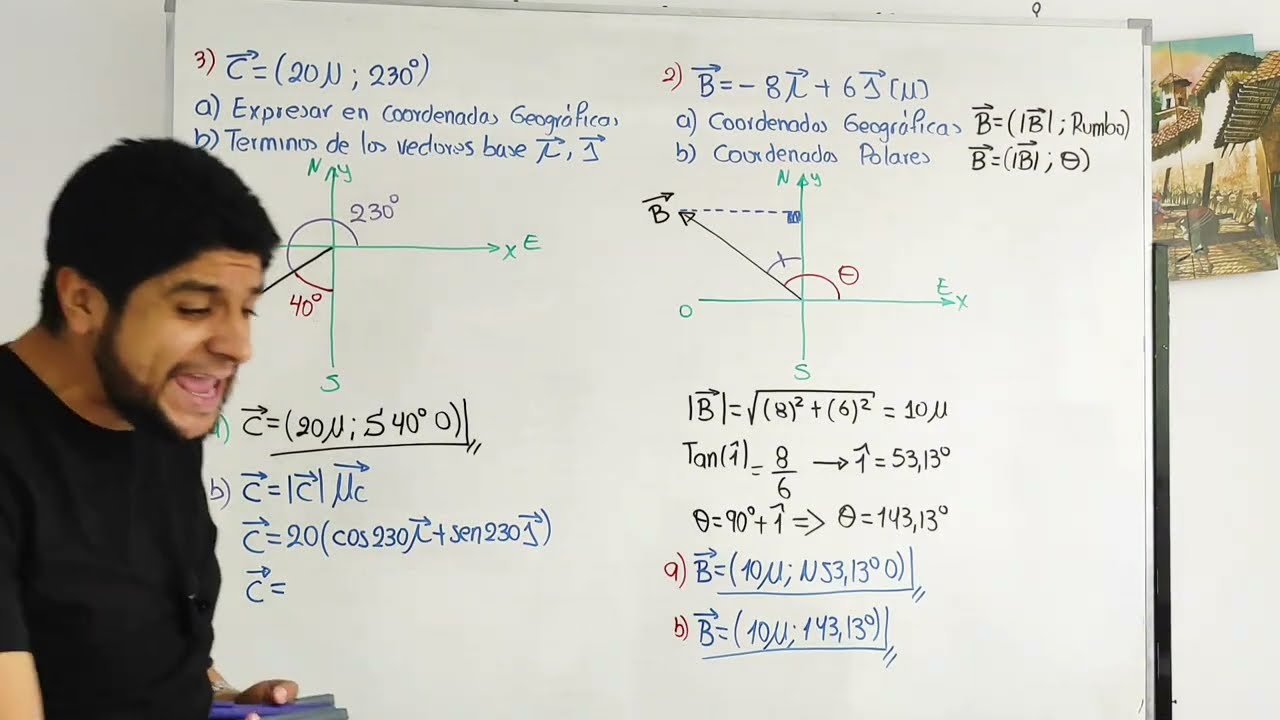 3) C⃗=(20μ; 230°)
a) Expresar en coordenadas Geográficas
b) Terminos de los vectores base i⃗, j⃗
N y
230°
X E
40°
S
) C⃗=(20μ; S 40° O)
b) C⃗=|C⃗| μ⃗c
C⃗=20(cos230i⃗+sen230j⃗)
C⃗=
2) B⃗=-8i⃗+6j⃗[μ]
a) Coordenadas Geográficas B⃗=(|B⃗|; Rumbo)
b) Coordenadas Polares B⃗=(|B⃗|; θ)
N y
B⃗
θ
E
X
O
S
|B⃗|=√(8)²+(6)² = 10μ
Tan(1̂)=8/6 → 1̂=53,13°
θ=90°+1̂ => θ=143,13°
a) B⃗=(10μ; N53,13° O)
b) B⃗=(10μ; 143,13°)